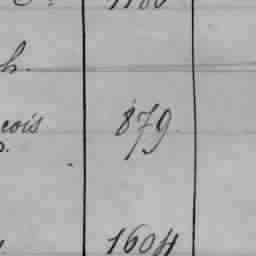 h.
cois 879
1604